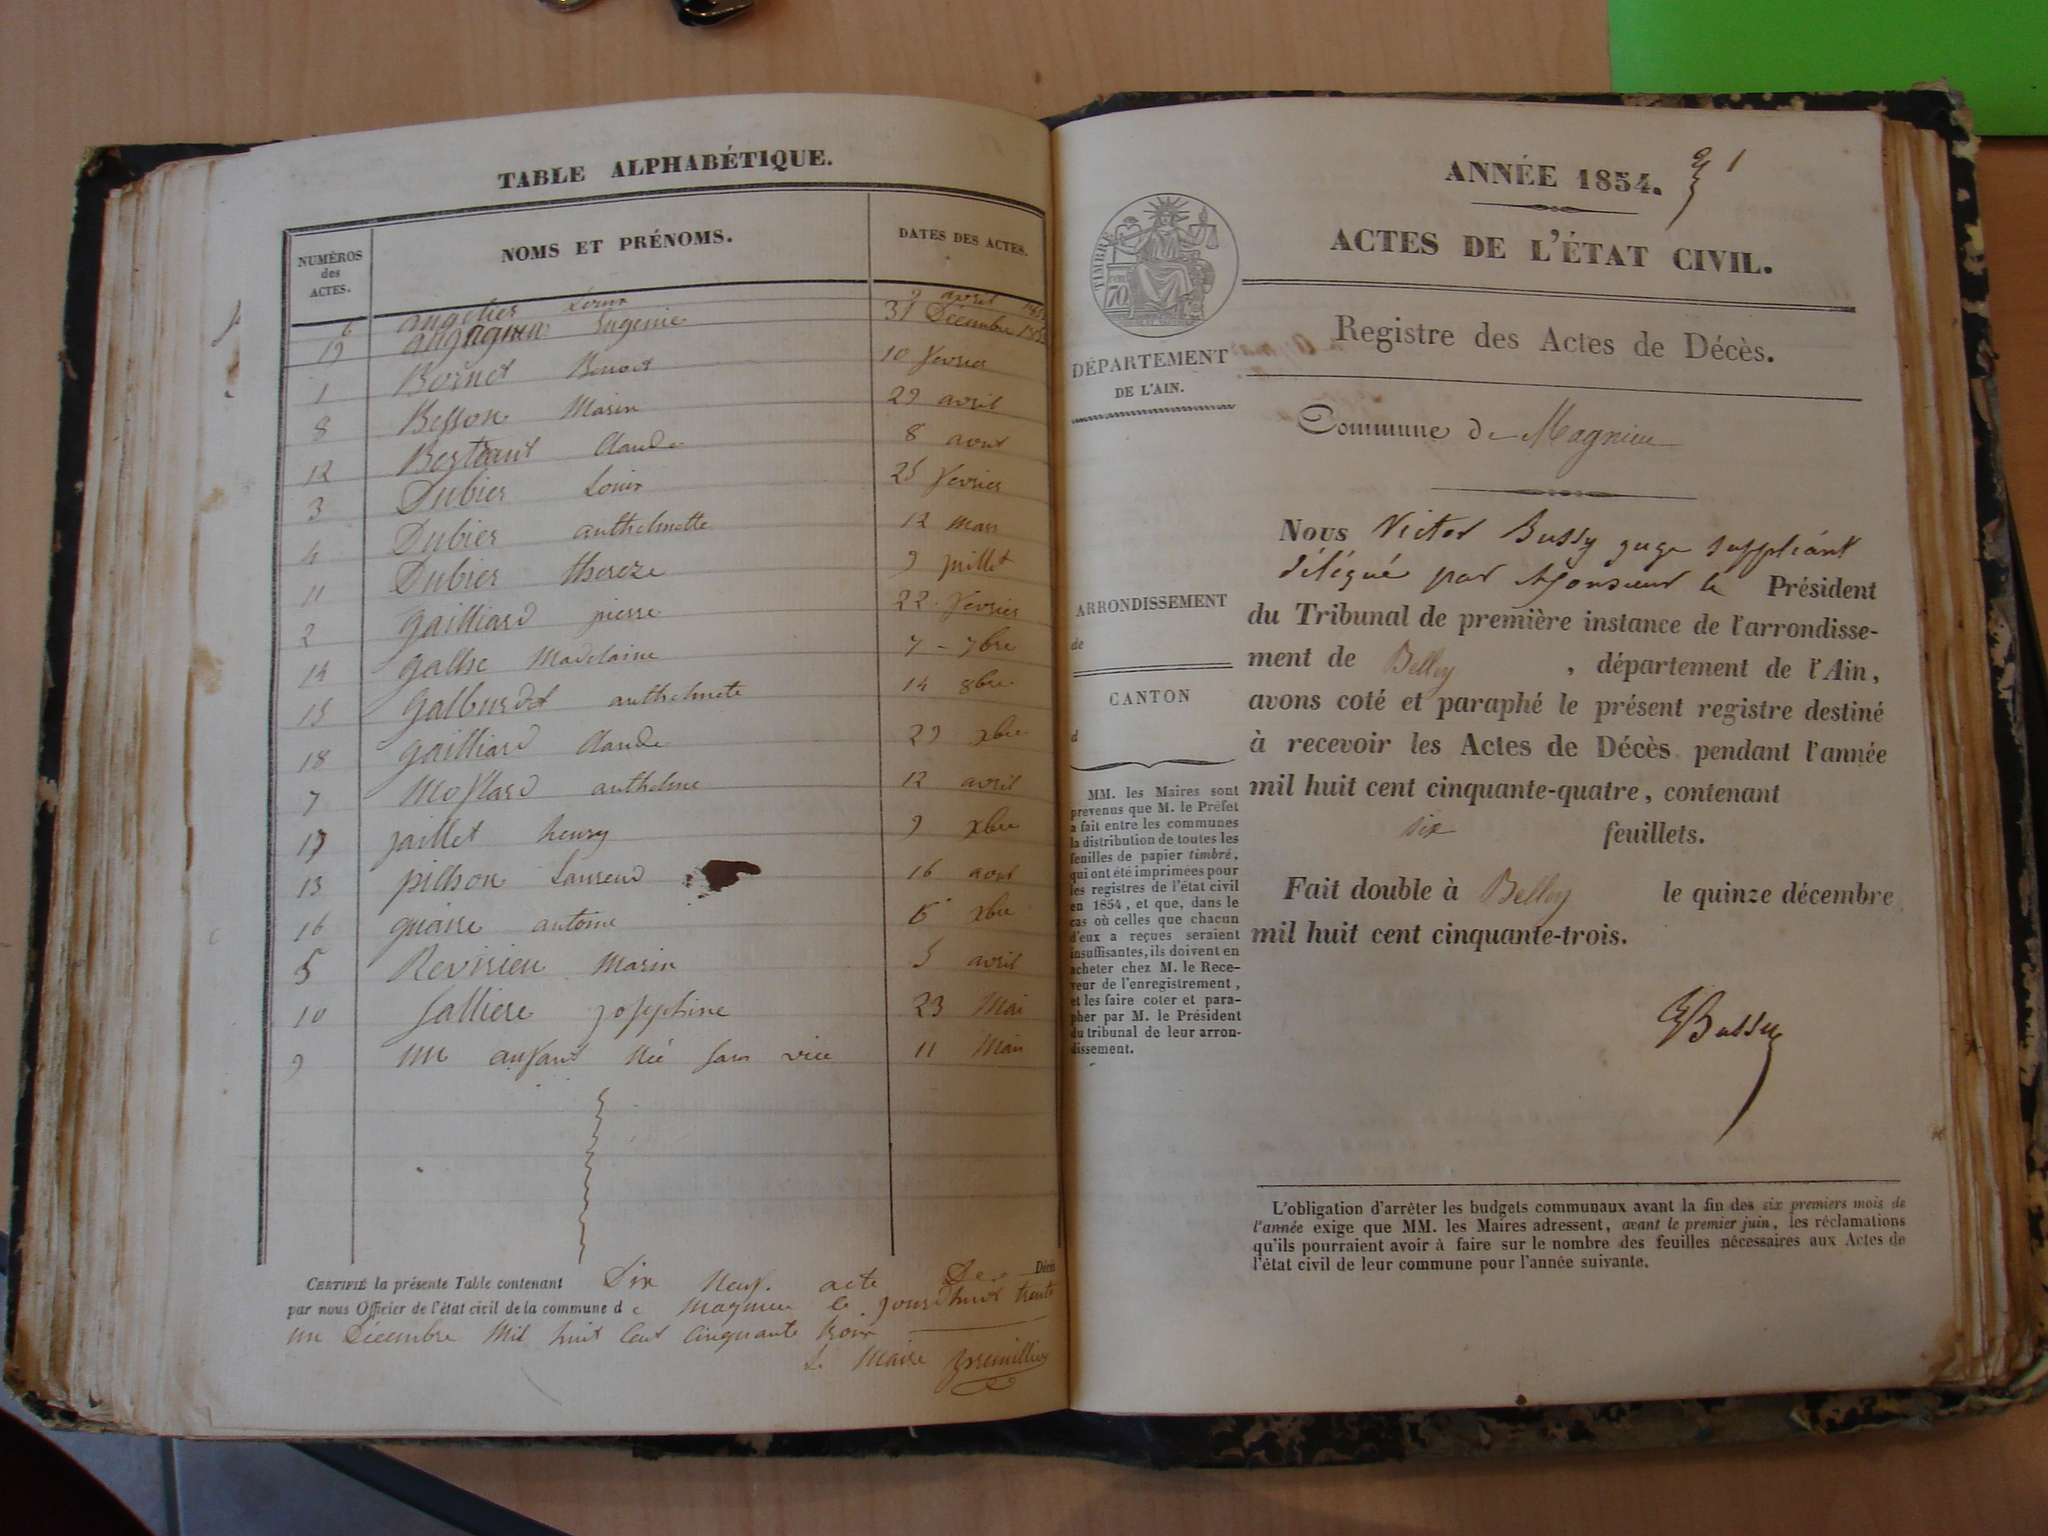 TABLE ALPHABÉTIQUE.
NUMÉROS des ACTES. NOMS ET PRÉNOMS. DATES DES ACTES.
6 angelier Louis 9 avril
19 Eugenie 31 Décembre
1 Bornet Benoit 10 fevrier
8 Besson Marin 29 avril
12 Berteaut Claude 8 aout
3 Dubier Louis 25 fevrier
4 Dubier anthelmette 12 mars
11 Dubier thereze 9 juillet
2 gailliard pierre 22 fevrier
14 Madelaine 7 - 7bre
15 anthelmete 14 8bre
18 gailliard Claude 29 xbre
7 Mollard anthelme 12 avril
17 jaillet henry 9 xbre
13 pichon Laurend 16 aout
16 antoine 6 xbre
5 Revirieu Marin 5 avril
10 Salliere josephine 23 Mai
9 un anfant Née sans vie 11 Mai
CERTIFIÉ la présente Table contenant Dix Neuf acte De Décès
par nous Officier de l'état civil de la commune de Magnieu le jourdhuit trente
un Décembre Mil huit Cent Cinquante trois
Le Maire
ANNÉE 1854. 1
ACTES DE L'ÉTAT CIVIL.
Registre des Actes de Décès.
TIMBRE 70
DÉPARTEMENT
DE L'AIN.
Commune de Magnieu
Nous Victor Bussy juge suppléant
délégué par Monsieur le Président
du Tribunal de première instance de l'arrondisse-
ment de Belley , département de l'Ain,
avons coté et paraphé le présent registre destiné
à recevoir les Actes de Décès pendant l'année
mil huit cent cinquante-quatre, contenant
six feuillets.
Fait double à Belley le quinze décembre
mil huit cent cinquante-trois.
VBussy
ARRONDISSEMENT
de
CANTON
d
MM. les Maires sont
prévenus que M. le Préfet
a fait entre les communes
la distribution de toutes les
feuilles de papier timbré,
qui ont été imprimées pour
les registres de l'état civil
en 1854, et que, dans le
cas où celles que chacun
d'eux a reçues seraient
insuffisantes, ils doivent en
acheter chez M. le Rece-
veur de l'enregistrement,
et les faire coter et para-
pher par M. le Président
du tribunal de leur arron-
dissement.
L'obligation d'arrêter les budgets communaux avant la fin des six premiers mois de
l'année exige que MM. les Maires adressent, avant le premier juin, les réclamations
qu'ils pourraient avoir à faire sur le nombre des feuilles nécessaires aux Actes de
l'état civil de leur commune pour l'année suivante.